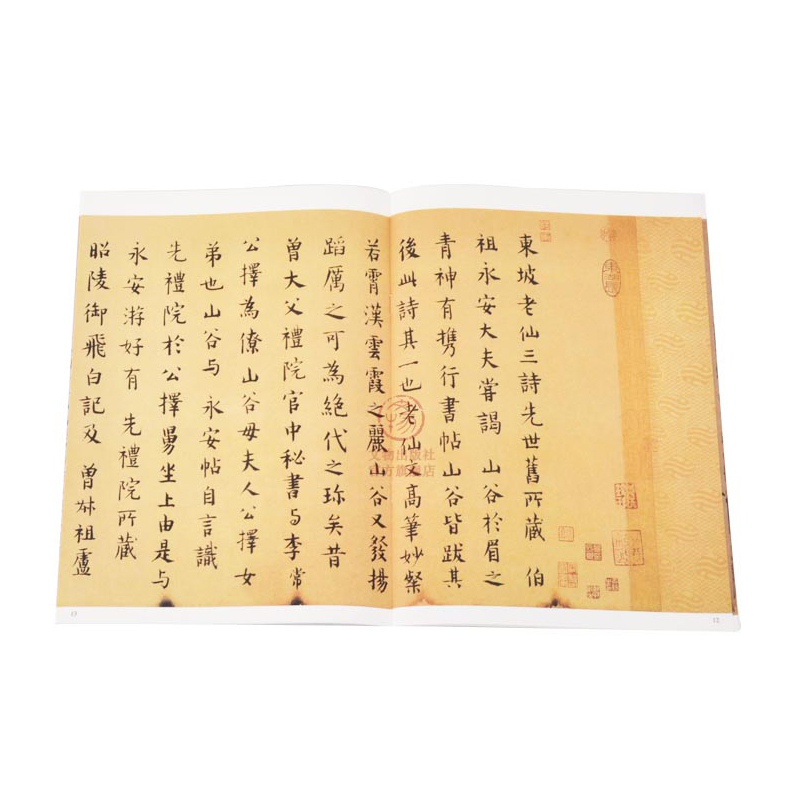 東坡老仙三詩先世舊所藏 伯
祖永安大夫嘗謁 山谷於眉之
青神有携行書帖山谷皆跋其
後此詩其一也老仙文高筆妙粲
若霄漢雲霞之麗山谷又發揚
蹈厲之可為絕代之珍矣昔
曾大父禮院官中秘書与李常
公擇為僚山谷母夫人公擇女
弟也山谷与 永安帖自言識
先禮院於公擇舅坐上由是与
永安游好有 先禮院所藏
昭陵御飛白記及 曾叔祖盧
文物出版社
官方旗舰店
13
12